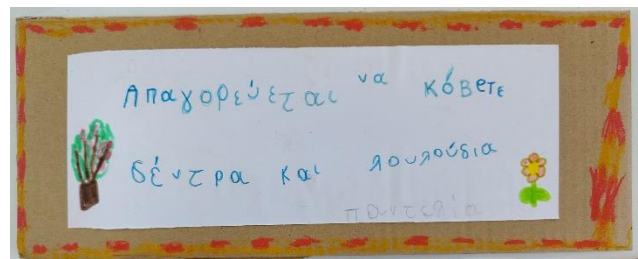 Απαγορεύεται να κόβετε
δέντρα και λουλούδια
παντελία